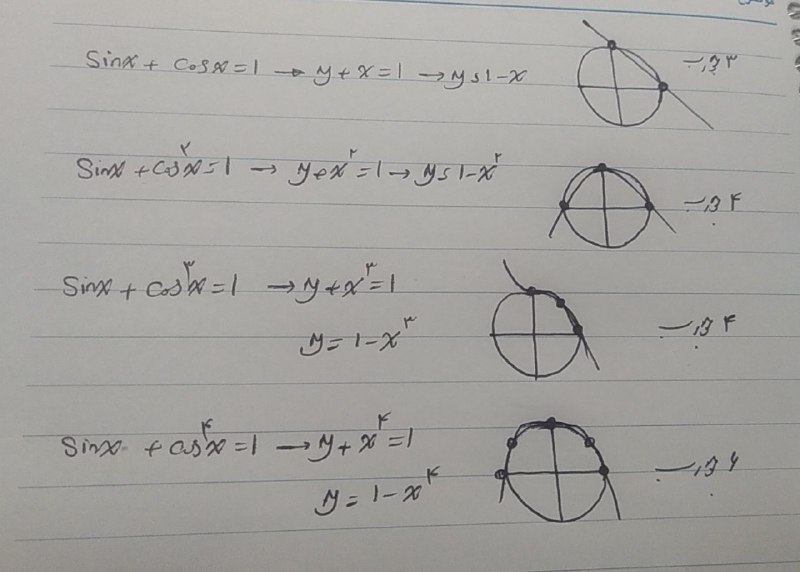 Sinx + cosx = 1 → y + x = 1 → y = 1 - x ۳ جواب
Sinx + cos²x = 1 → y + x² = 1 → y = 1 - x² ۴ جواب
Sinx + cos³x = 1 → y + x³ = 1
y = 1 - x³ ۴ جواب
Sinx + cos⁴x = 1 → y + x⁴ = 1
y = 1 - x⁴ ۶ جواب